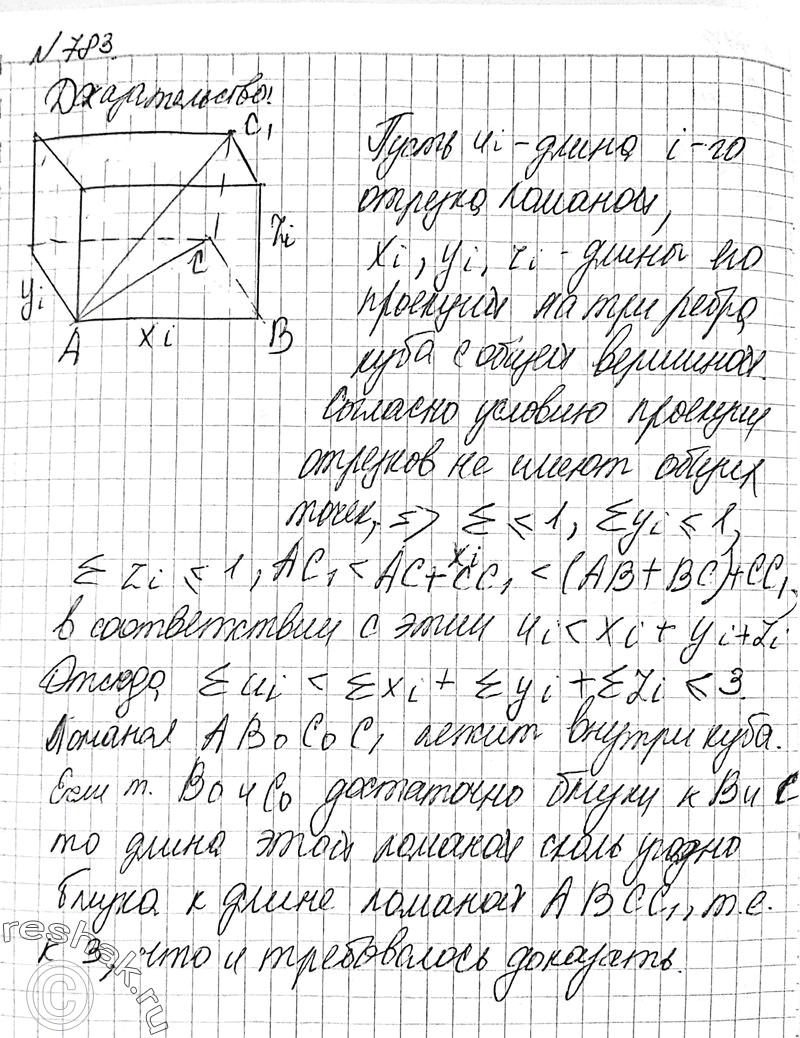 N 783.
Доказательство:
C₁
Пусть ui - длина i-го
отрезка ломаной,
zi
C
xi, yi, zi - длины его
yi
проекций на три ребра
A xi B
куба с общей вершиной.
Согласно условию проекции
отрезков не имеют общих
точек, => Σ xi ⩽ 1, Σyi ⩽ 1,
Σ zi ⩽ 1, AC₁ < AC + CC₁ < (AB + BC) + CC₁,
в соответствии с этим ui < xi + yi + zi
Отсюда Σui < Σxi + Σyi + Σzi ⩽ 3.
Ломаная AB₀C₀C₁ лежит внутри куба.
Если т. B₀ и C₀ достаточно близки к B и C
то длина этой ломаной сколь угодно
близка к длине ломаной ABCC₁, т.е.
к 3, что и требовалось доказать.
reshak.ru
©